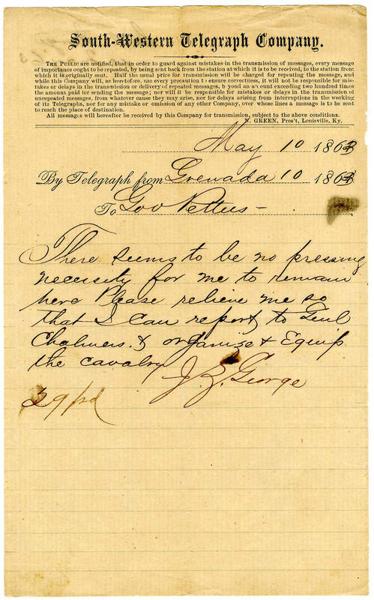 South-Western Telegraph Company.
THE PUBLIC are notified, that in order to guard against mistakes in the transmission of messages, every message
of importance ought to be repeated, by being sent back from the station at which it is to be received, to the station from
which it is originally sent. Half the usual price for transmission will be charged for repeating the message, and
while this Company will, as heretofore, use every precaution to ensure correctness, it will not be responsible for mis-
takes or delays in the transmission or delivery of repeated messages, beyond an amount exceeding two hundred times
the amount paid for sending the message; nor will it be responsible for mistakes or delays in the transmission of
unrepeated messages, from whatever cause they may arise, nor for delays arising from interruptions in the working
of its Telegraphs, nor for any mistake or omission of any other Company, over whose lines a message is to be sent
to reach the place of destination.
All messages will hereafter be received by this Company for transmission, subject to the above conditions.
GREEN, Pres't, Louisville, Ky.
May 10 1863
By Telegraph from Grenada 10 1863
To Gov Pettus -
There seems to be no pressing
necessity for me to remain
here Please relieve me so
that I can report to Genl
Chalmers & organize & Equip
the cavalry
J Z George
29/pd